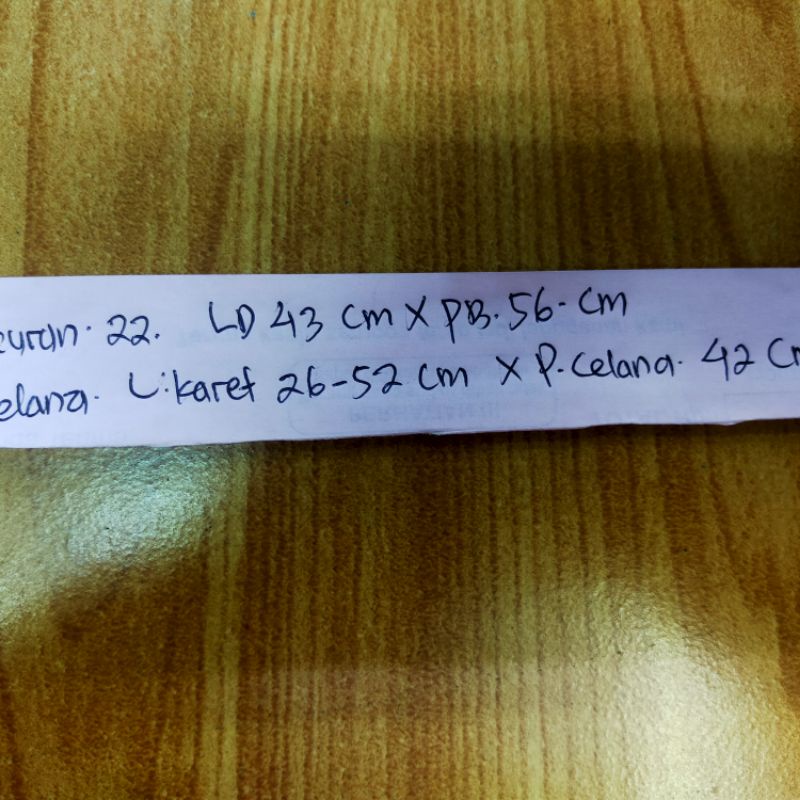 kuran. 22. LD 43 cm X PB. 56. cm
elana. L.karet 26-52 cm X P. celana. 42 Cm